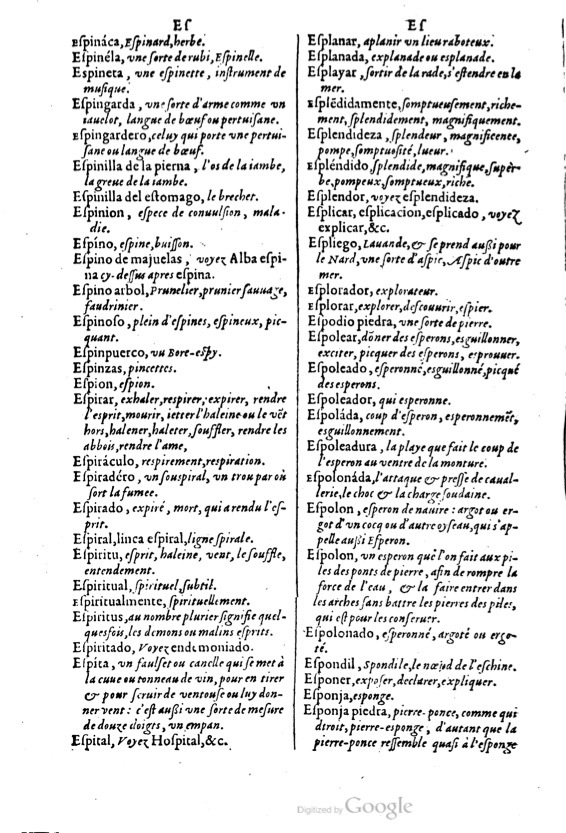 Eſ
Eſpináca, Eſpinard, herbe.
Eſpinéla, vne ſorte de rubi, Eſpinelle.
Eſpineta, vne eſpinette, inſtrument de
muſique.
Eſpingarda, vne ſorte d'arme comme vn
iauelot, langue de bœuf ou pertuiſane.
Eſpingardero, celuy qui porte vne pertui-
ſane ou langue de bœuf.
Eſpinilla de la pierna, l'os de la iambe,
la greue de la iambe.
Eſpinilla del eſtomago, le brechet.
Eſpinion, eſpece de conuulſion, mala-
die.
Eſpíno, eſpine, buiſſon.
Eſpino de majuelas, voyez Alba eſpi-
na cy-deſſus apres eſpina.
Eſpino arbol, Prunelier, prunier ſauuage,
faudrinier.
Eſpinoſo, plein d'eſpines, eſpineux, pic-
quant.
Eſpinpuerco, vn Bore-eſpy.
Eſpinzas, pincettes.
Eſpion, eſpion.
Eſpirar, exhaler, reſpirer, expirer, rendre
l'eſprit, mourir, ietter l'haleine ou le vẽt
hors, halener, haleter, ſouffler, rendre les
abbois, rendre l'ame,
Eſpiráculo, reſpirement, reſpiration.
Eſpiradéro, vn ſouſpiral, vn trou par où
ſort la fumee.
Eſpirado, expiré, mort, qui a rendu l'eſ-
prit.
Eſpiral, linea eſpiral, ligne ſpirale.
Eſpiritu, eſprit, haleine, vent, le ſouffle,
entendement.
Eſpiritual, ſpirituel, ſubtil.
Eſpiritualmente, ſpirituellement.
Eſpiritus, au nombre plurier ſignifie quel-
quesfois, les demons ou malins eſprits.
Eſpiritado, Voyez endemoniado.
Eſpita, vn faulſet ou canelle qui ſe met à
la cuue ou tonneau de vin, pour en tirer
& pour ſeruir de ventouſe ou luy don-
ner vent : c'eſt auſſi vne ſorte de meſure
de douze doigts, vn empan.
Eſpital, Voyez Hoſpital, &c.
Eſ
Eſplanar, aplanir vn lieu raboteux.
Eſplanada, explanade ou esplanade.
Eſplayar, ſortir de la rade, s'eſtendre en la
mer.
Eſplẽdidamente, ſomptueuſement, riche-
ment, ſplendidement, magnifiquement.
Eſplendideza, ſplendeur, magnificente,
pompe, ſomptuoſité, lueur.
Eſpléndido, ſplendide, magnifique, ſupèr-
be, pompeux, ſomptueux, riche.
Eſplendor, voyez eſplendideza.
Eſplicar, eſplicacion, eſplicado, voyez
explicar, &c.
Eſpliego, Lauande, & ſe prend auſſi pour
le Nard, vne ſorte d'aſpic, Aſpic d'outre
mer.
Eſplorador, explorateur.
Eſplorar, explorer, deſcouurir, eſpier.
Eſpodio piedra, vne ſorte de pierre.
Eſpolear, dõner des eſperons, eſguillonner,
exciter, picquer des eſperons, eſprouuer.
Eſpoleado, eſperonné, eſguillonné, picqué
des eſperons.
Eſpoleador, qui eſperonne.
Eſpoláda, coup d'eſperon, eſperonnemẽt,
eſguillonnement.
Eſpoleadura, la playe que fait le coup de
l'eſperon au ventre de la monture.
Eſpolonáda, l'attaque & preſſe de cauall-
lerie, le choc & la charge ſoudaine.
Eſpolon, eſperon de nauire : argot ou er-
got d'vn cocq ou d'autre oyſeau, qui s'ap-
pelle auſſi Eſperon.
Eſpolon, vn eſperon que l'on fait aux pi-
les des ponts de pierre, afin de rompre la
force de l'eau, & la faire entrer dans
les arches ſans battre les pierres des piles,
qui eſt pour les conſeruer.
Eſpolonado, eſperonné, argoté ou ergo-
té.
Eſpondil, Spondile, le nœud de l'eſchine.
Eſponer, expoſer, declarer, expliquer.
Eſponja, eſponge.
Eſponja piedra, pierre-ponce, comme qui
diroit, pierre-eſponge, d'autant que la
pierre-ponce reſſemble quaſi à l'eſponge
Digitized by Google